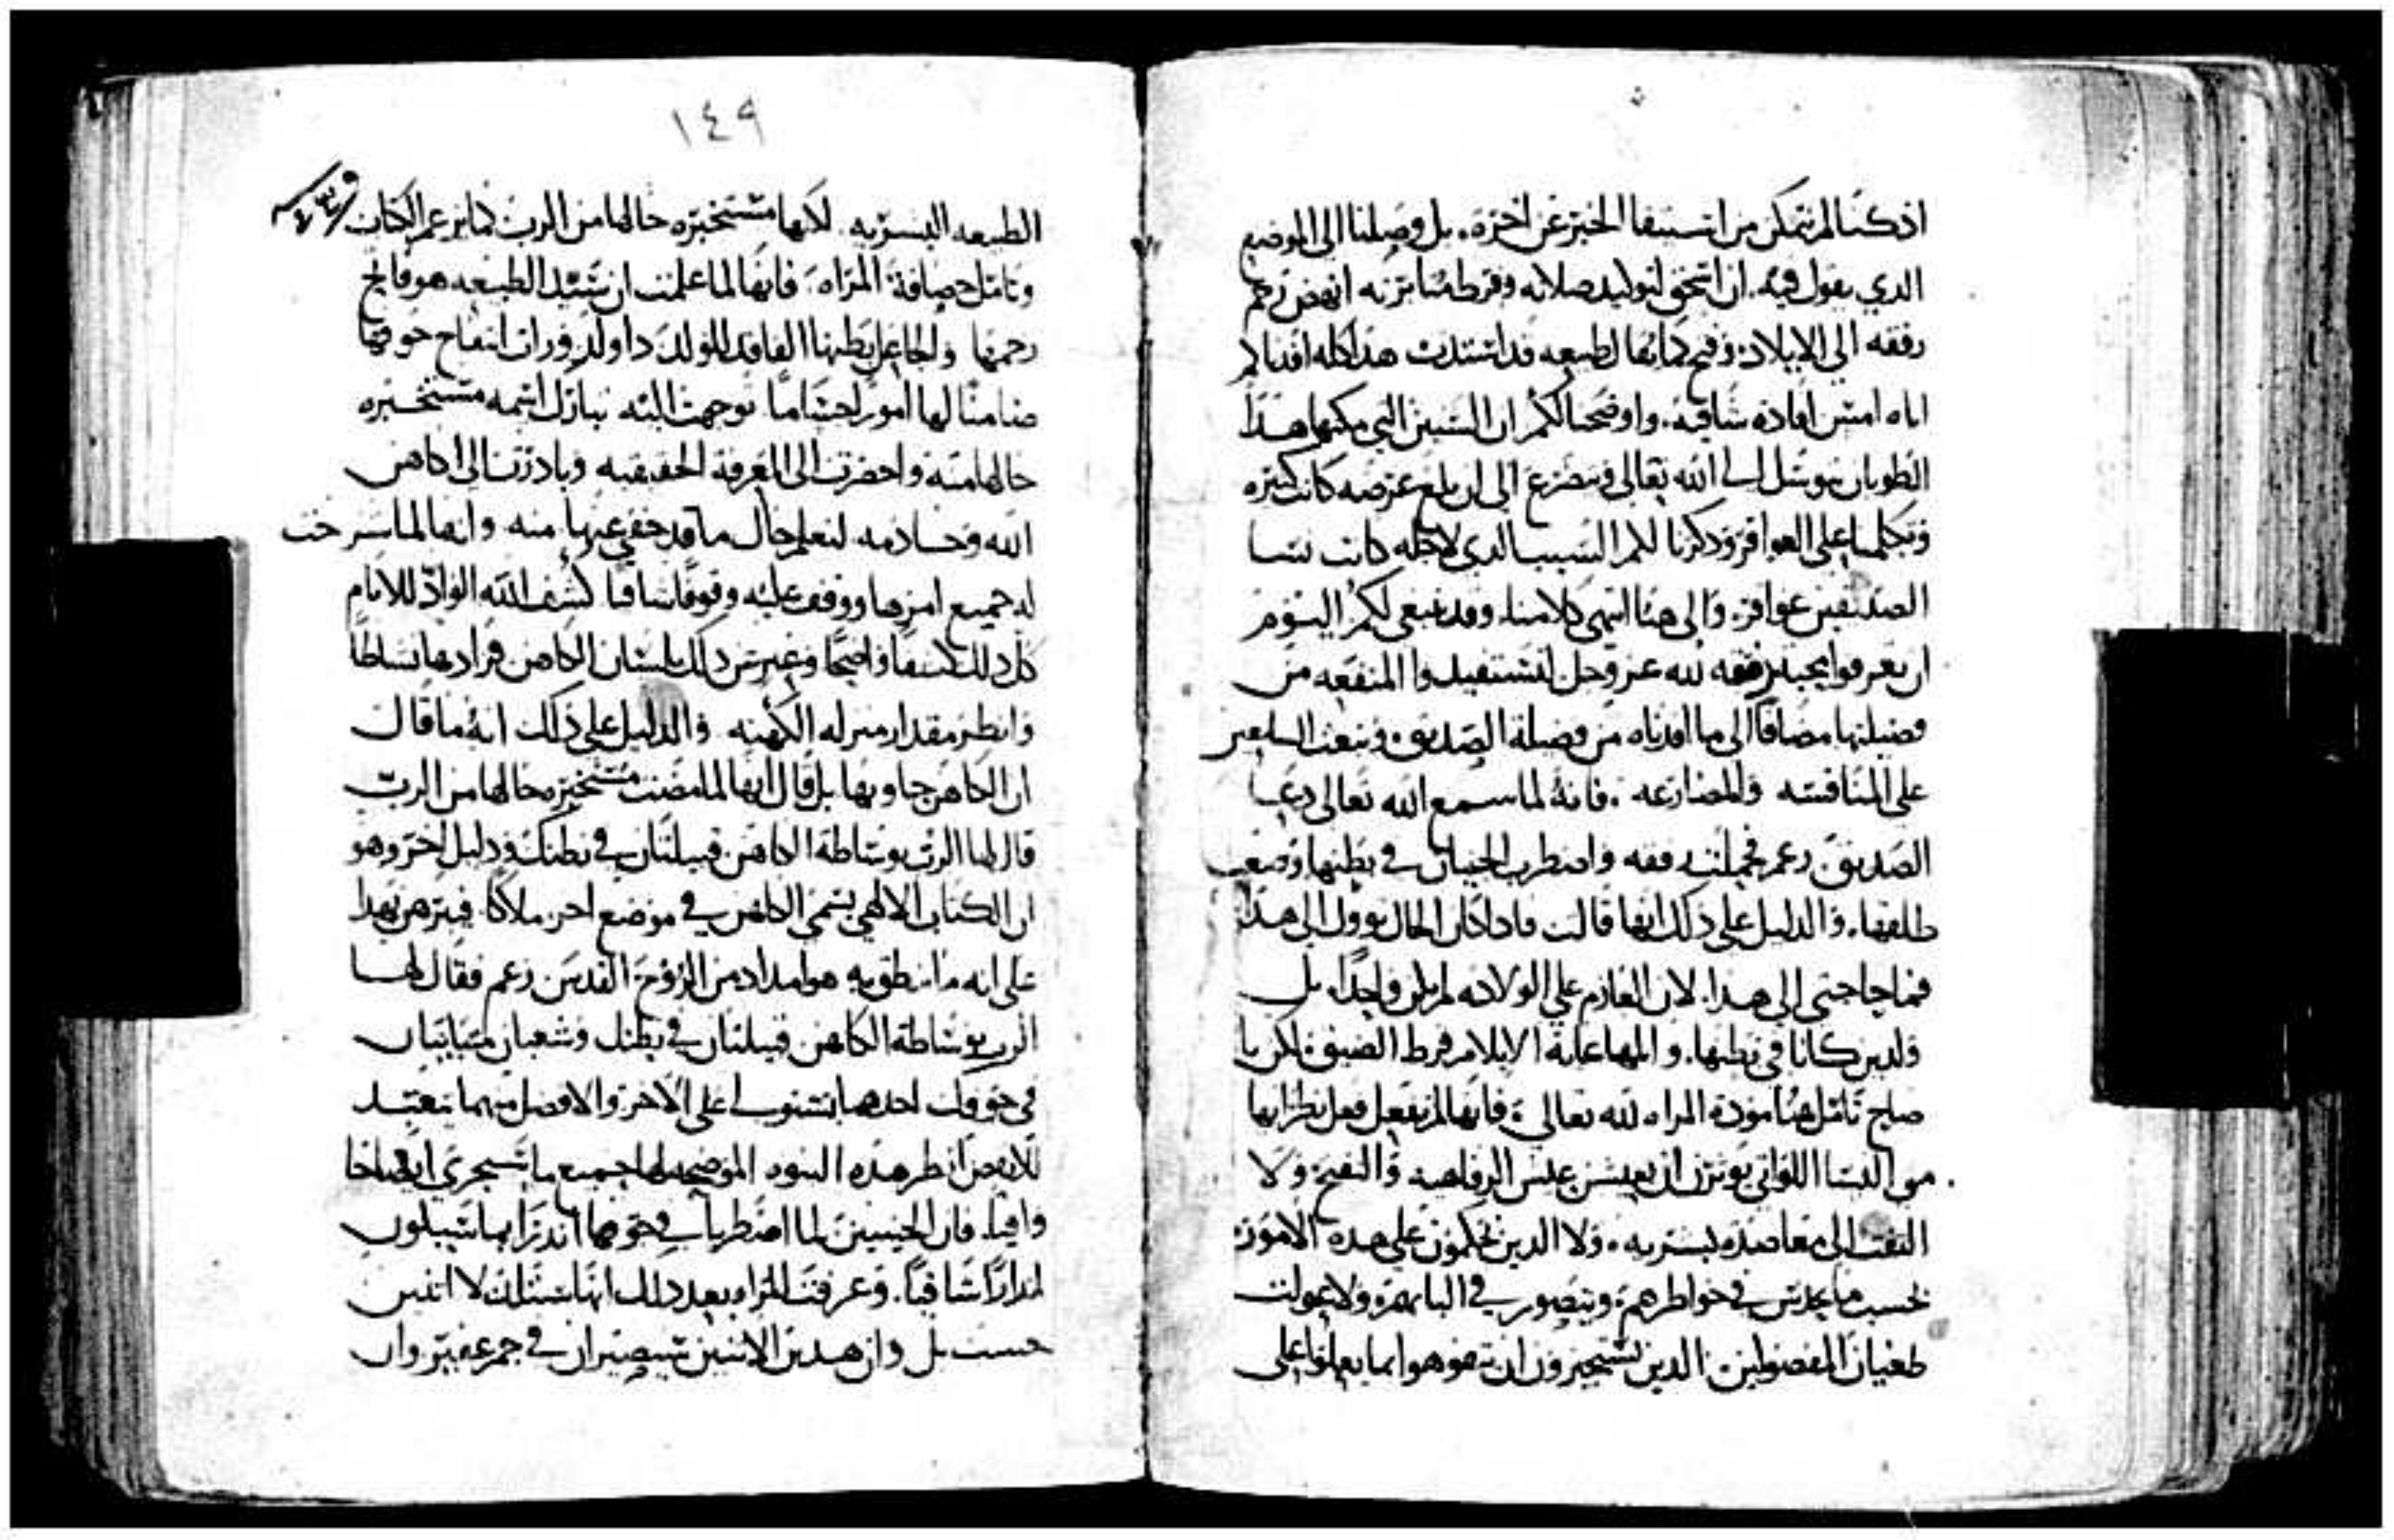 اذ كنا لم نتمكن من استيفا الخبر عن اخره. بل وصلنا الى الموضع
الذي يقول فيه. ان اسحق لتوليد صلاته وفرط مثابرته انهض رحم
رفقه الى الايلاد. وفتح كما بها الطبيعه قد استدت هذا كله افدناكم
اياه امس افاده شافيه. واوضحنا لكم ان السنين التي مكثها هذا
الطوبان يتوسل الى الله تعالى ويتضرع الى ان بلغ غرضه كانت كثيره
وتكلمنا على العواقر وذكرنا لكم السبب الذي لاجله كانت نسا
الصديقين عواقر. والى هنا انتهى كلامنا. وقد ينبغي لكم اليوم
ان تعرفوا محبة رفقه لله عز وجل لتستفيدوا المنفعه من
فضيلتها مضافا الى ما افدناه من فضيلة الصديق. ونبعث السامعين
على المنافسه والمضارعه. فانه لما سمع الله تعالى دعا
الصديق زعم فحملت رفقه واضطرب الجنينان في بطنها وصعب
طلقها. والدليل على ذلك انها قالت فاذا كان الحال يوول الى هذا
فما حاجتى الى هذا. لان العازم على الولاده لم يكن واحدا. بل
ولدين كانا في بطنها. والمها غاية الايلام فرط الضيق. لكن يا
صاح تامل هنا مودة المراه لله تعالى. فانها لم تفعل فعل نظرايها
من النسا اللواتي يوثرن ان يعيشن عيش الرفاهيه والفسح. ولا
التفت الى معاضده بشريه. ولا الذين يحكمون على هذه الامور
بحسب ما يحدس في خواطرهم ويتصور في البابهم. ولا عولت
طغيان المفضولين. الذين يستجيزون ان يتفوهوا بما يعلوا على
١٤٩
الطبيعه البشريه. لكنها مستخبره حالها من الرب كما يزعم الكتاب
وتامل حصافة المراه. فانها لما علمت ان سيد الطبيعه هو فاتح
رحمها والجاعل بطنها الفاقد المولد ذا ولد. ورات انتفاخ جوفها
ضامنا لها امورا جساما توجهت اليه تبارك اسمه مستخبره
حالها منه واحضرت الى المعرفة الحقيقيه وبادرت الى كاهن
الله وخادمه لتعلم حال ما قد خفي عنها منه وانها لما شرحت
له جميع امرها ووقف عليه وقوفا شافيا كشف الله الواد للانام
كل ذلك كشفا واضحا وعبر عن ذلك بلسان الكاهن فزادها نشاطا
وانظر مقدار منزله الكهنه والدليل على ذلك انه ما قال
ان الكاهن جاوبها بل قال انها لما مضت مستخبره حالها من الرب
قال لها الرب بوساطة الكاهن قبيلتان في بطنك ودليل اخر وهو
ان الكتاب الالهي يسمى الكاهن في موضع اخر ملاكا. فيبرهن بهذا
على انه ما ينطق به هو امداد من الروح القدس زعم فقال لها
الرب بوساطة الكاهن قبيلتان في بطنك وشعبان متباينان
في جوفك احدهما يستولي على الاخر والافضل منهما يتعبد
للانقص انظر هذه النبوه الموضحه لها جميع ما سيجري ايضاحا
وافيا. فان الجنينين لما اضطربا في جوفها انذرا بما سيكون
انذارا شافيا. وعرفت المراه بعد ذلك انها ستلد لا اثنين
حسب بل وان هذين الاثنين سيصيران في جم غفير وان